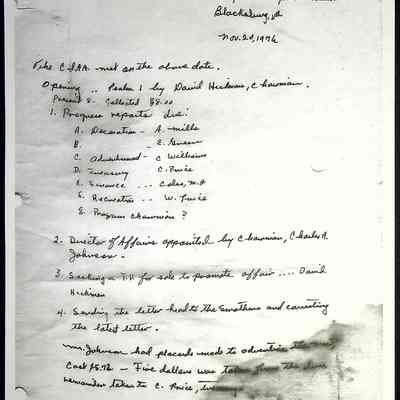 Blacksburg, Va
Nov. 20, 1976
The CIAA met on the above date.
Opening .. Psalm 1 by David Hickman, Chairman.
Present 8. Collected $8.00
1. Progress reports due:
A. Decoration - A. Mills
B. - E.
C. Advertisement - C Wellhams
D. Treasury C. Price
E. Finance ... Coles, M.A
F. Recreation .. W. Price
G. Program Chairman ?
2. Director of Affairs appointed by Chairman, Charles A.
Johnson.
3. Seeking a for sale to promote affair .... David
Hickman
4. Sending the letter head to the and correcting
the latest letter.
Mr. Johnson had placards made to advertise the
Cost $5.72 - Five dollars was taken from the dues
remainder taken to C. Price,